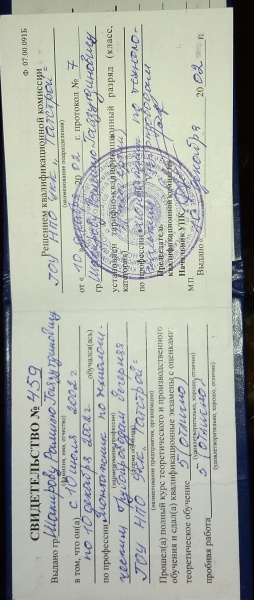 СВИДЕТЕЛЬСТВО № 459
Выдано гр. Шакирову Рамилю Газзутдиновичу
(фамилия, имя, отчество)
в том, что он(а) с 10 июня 2002 г.
по 10 декабря 2002 г. обучался(ась)
по профессии Монтажник по техноло-
гическим трубопроводам вечерняя
ГОУ НПО УКК „Татстрой“
(наименование предприятия, организации)
Прошел(а) полный курс теоретического и производственного
обучения и сдал(а) квалификационные экзамены с оценками:
теоретическое обучение 5 (отлично)
(удовлетворительно, хорошо, отлично)
пробная работа 5 (отлично)
(удовлетворительно, хорошо, отлично)
Ф. 07.00.091Б
Решением квалификационной комиссии
ГОУ НПО УКК „Татстрой“
(наименование подразделения)
от «10» декабря 2002 г. протокол № 7
гр. Шакирову Рамилю Газзутдиновичу
установлен тарифно-квалификационный разряд (класс,
категория)
по профессии по техноло-
трубопроводам
Председатель
квалификационной комиссии
Начальник УПК
М.П. Выдано декабря 2002 г.